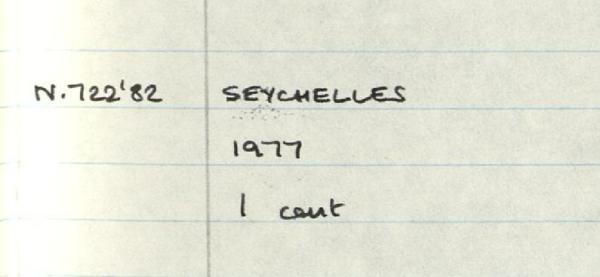 N.722'82 SEYCHELLES
1977
1 cent